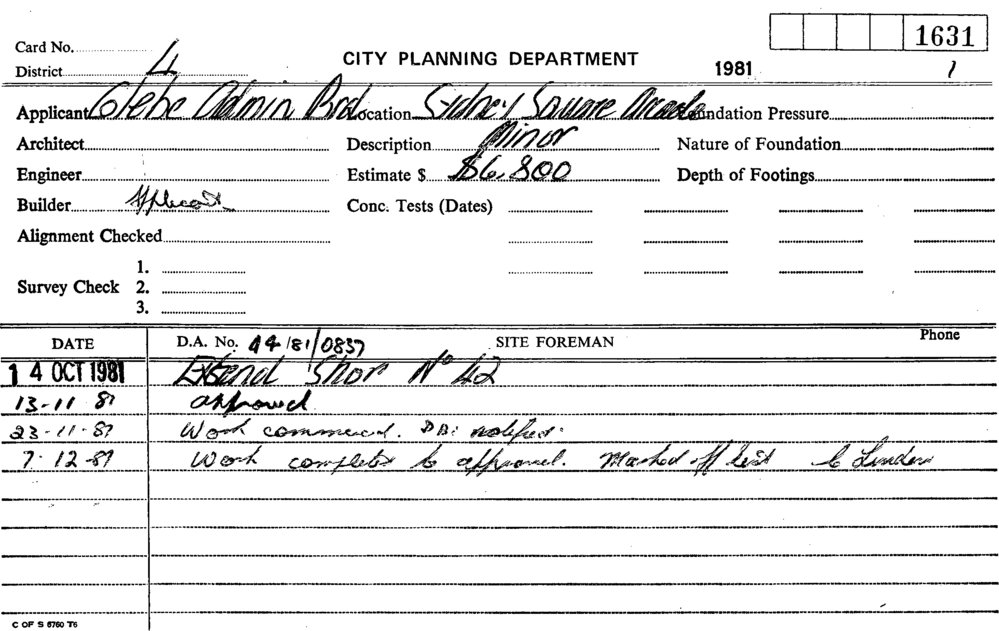 1631
Card No. CITY PLANNING DEPARTMENT
District 4 1981 1
Applicant Glebe Admin Brd Location Sydney Square Arcade Foundation Pressure
Architect Description Minor Nature of Foundation
Engineer Estimate $ $6,800 Depth of Footings
Builder Applicant Conc. Tests (Dates)
Alignment Checked
1.
Survey Check 2.
3.
DATE D.A. No. 44/81/0837 SITE FOREMAN Phone
14 OCT 1981 Extend Shop No 42
13-11-81 approved
23-11-81 Work commenced. DBI notified.
7-12-81 Work completed to approval. Marked off list
C OF S 6760 T6